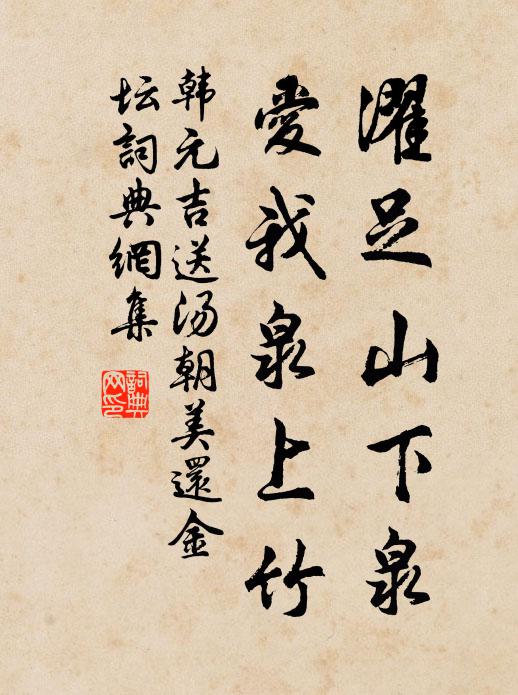 濯足山下泉
愛我泉上竹
韩元吉送汤朝美還金
坛詞典網集
詞典網印